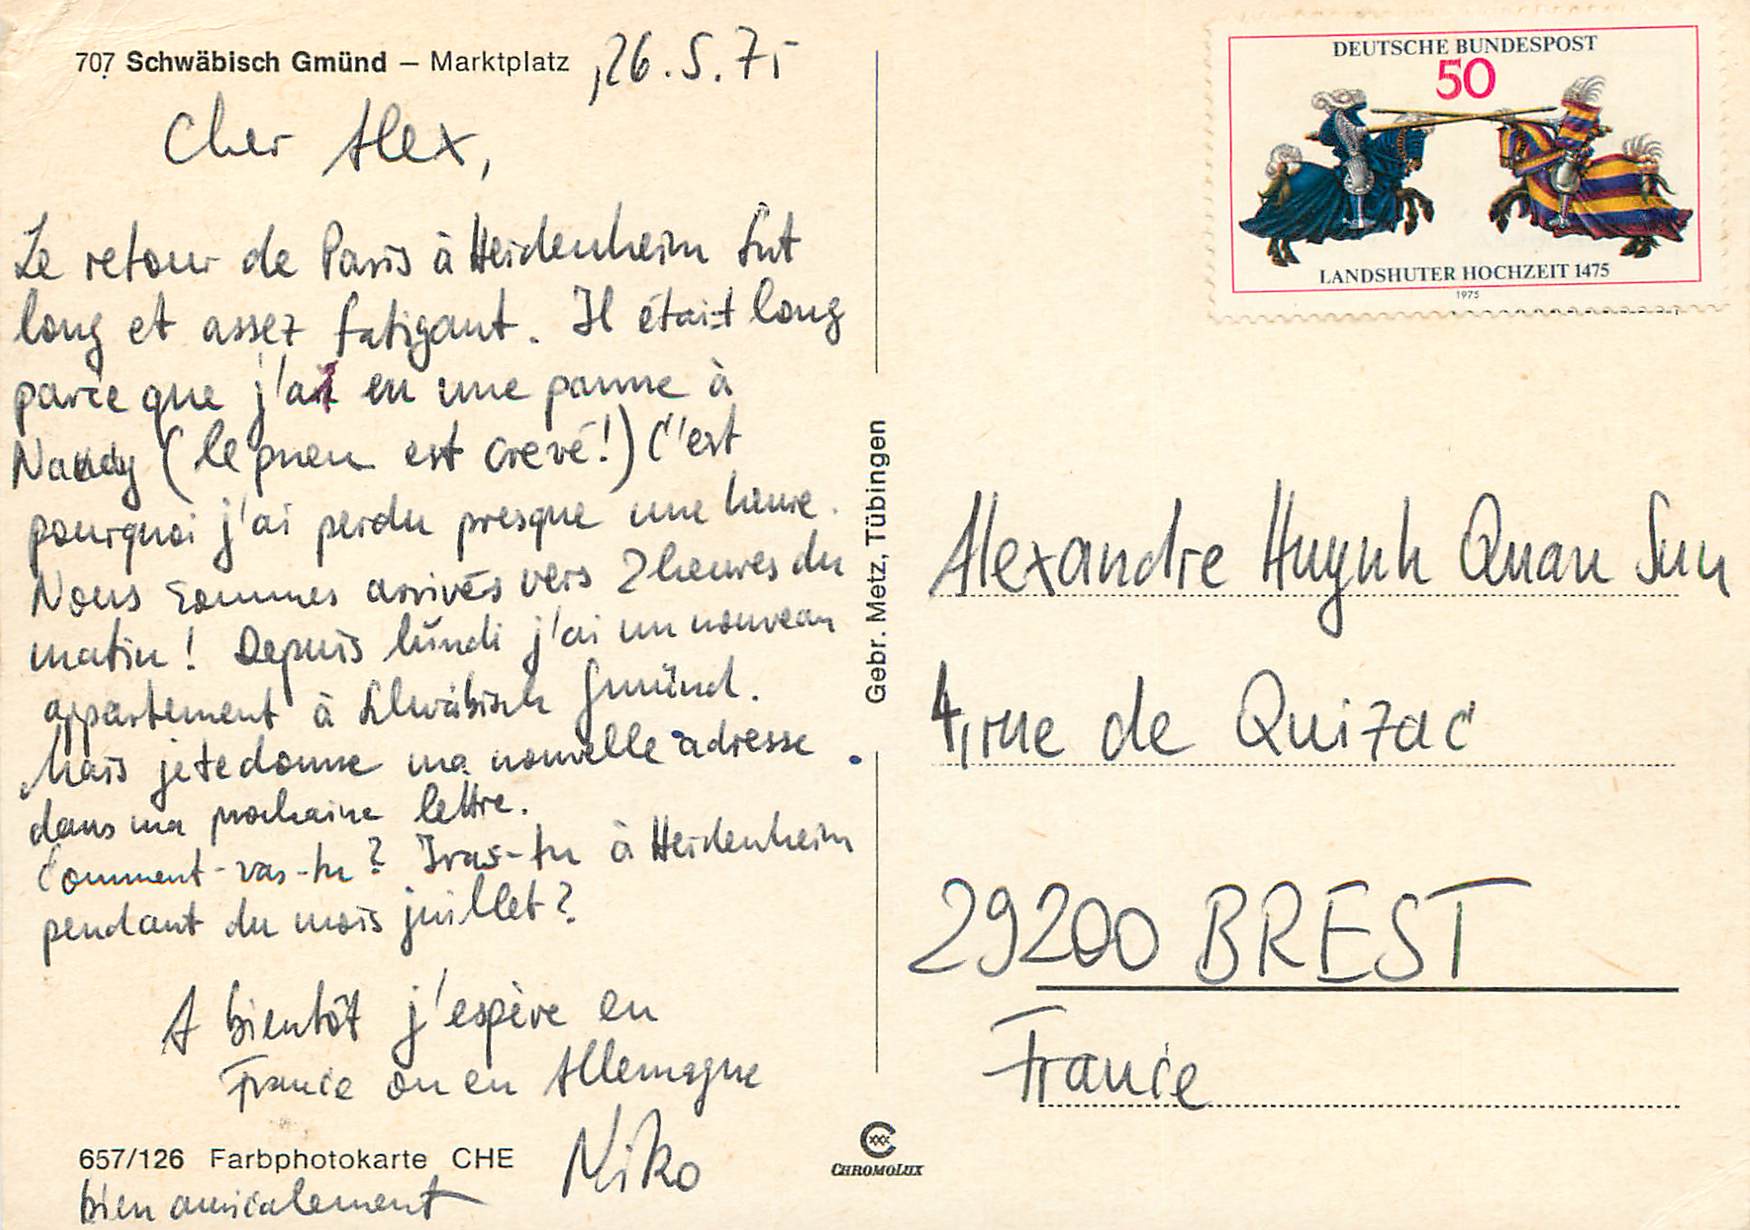 707 Schwäbisch Gmünd – Marktplatz
26.5.75
Cher Alex,
Le retour de Paris à Heidenheim fut
long et assez fatigant. Il était long
parce que j'ai eu une panne à
Nancy (le pneu est crevé!) C'est
pourquoi j'ai perdu presque une heure.
Nous sommes arrivés vers 2 heures du
matin! Depuis lundi j'ai un nouveau
appartement à Schwäbisch Gmünd.
Mais je te donne ma nouvelle adresse
dans ma prochaine lettre.
Comment-vas-tu? Iras-tu à Heidenheim
pendant du mois juillet?
A bientôt j'espère en
France ou en Allemagne
Niko
bien amicalement
657/126 Farbphotokarte CHE
Gebr. Metz, Tübingen
CHROMOLUX
DEUTSCHE BUNDESPOST
50
LANDSHUTER HOCHZEIT 1475
1975
Alexandre Huynh Quan Suu
4, rue de Quizac
29200 BREST
France